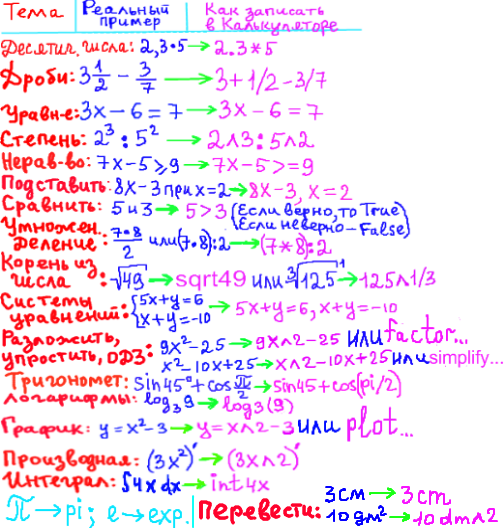 Тема Реальный пример Как записать в Калькуляторе
Десятич. числа: 2,3•5 → 2.3*5
Дроби: 3 1/2 − 3/7 → 3+1/2−3/7
Уравн-е: 3x−6=7 → 3x−6=7
Степень: 2³:5² → 2∧3:5∧2
Нерав-во: 7x−5⩾9 → 7x−5>=9
Подставить: 8x−3 при x=2 → 8x−3, x=2
Сравнить: 5 и 3 → 5>3 (Если верно, то True
Если неверно – False)
Умножен. Деление: 7•8/2 или (7•8):2 → (7*8):2
Корень из числа: √49 → sqrt49 или ³√125 → 125∧1/3
Системы уравнений: {5x+y=6 x+y=−10 → 5x+y=6, x+y=−10
Разложить, упростить, ОДЗ: 9x²−25 → 9x∧2−25 или factor...
x²−10x+25 → x∧2−10x+25 или simplify...
Тригономет: sin45°+cos π/2 → sin45+cos(pi/2)
Логарифмы: log₃9 → log3(9)
График: y=x²−3 → y=x∧2−3 или plot...
Производная: (3x²)′ → (3x∧2)′
Интеграл: ∫4x dx → int4x
π → pi; e → exp. Перевести: 3см → 3cm
10дм² → 10dm∧2